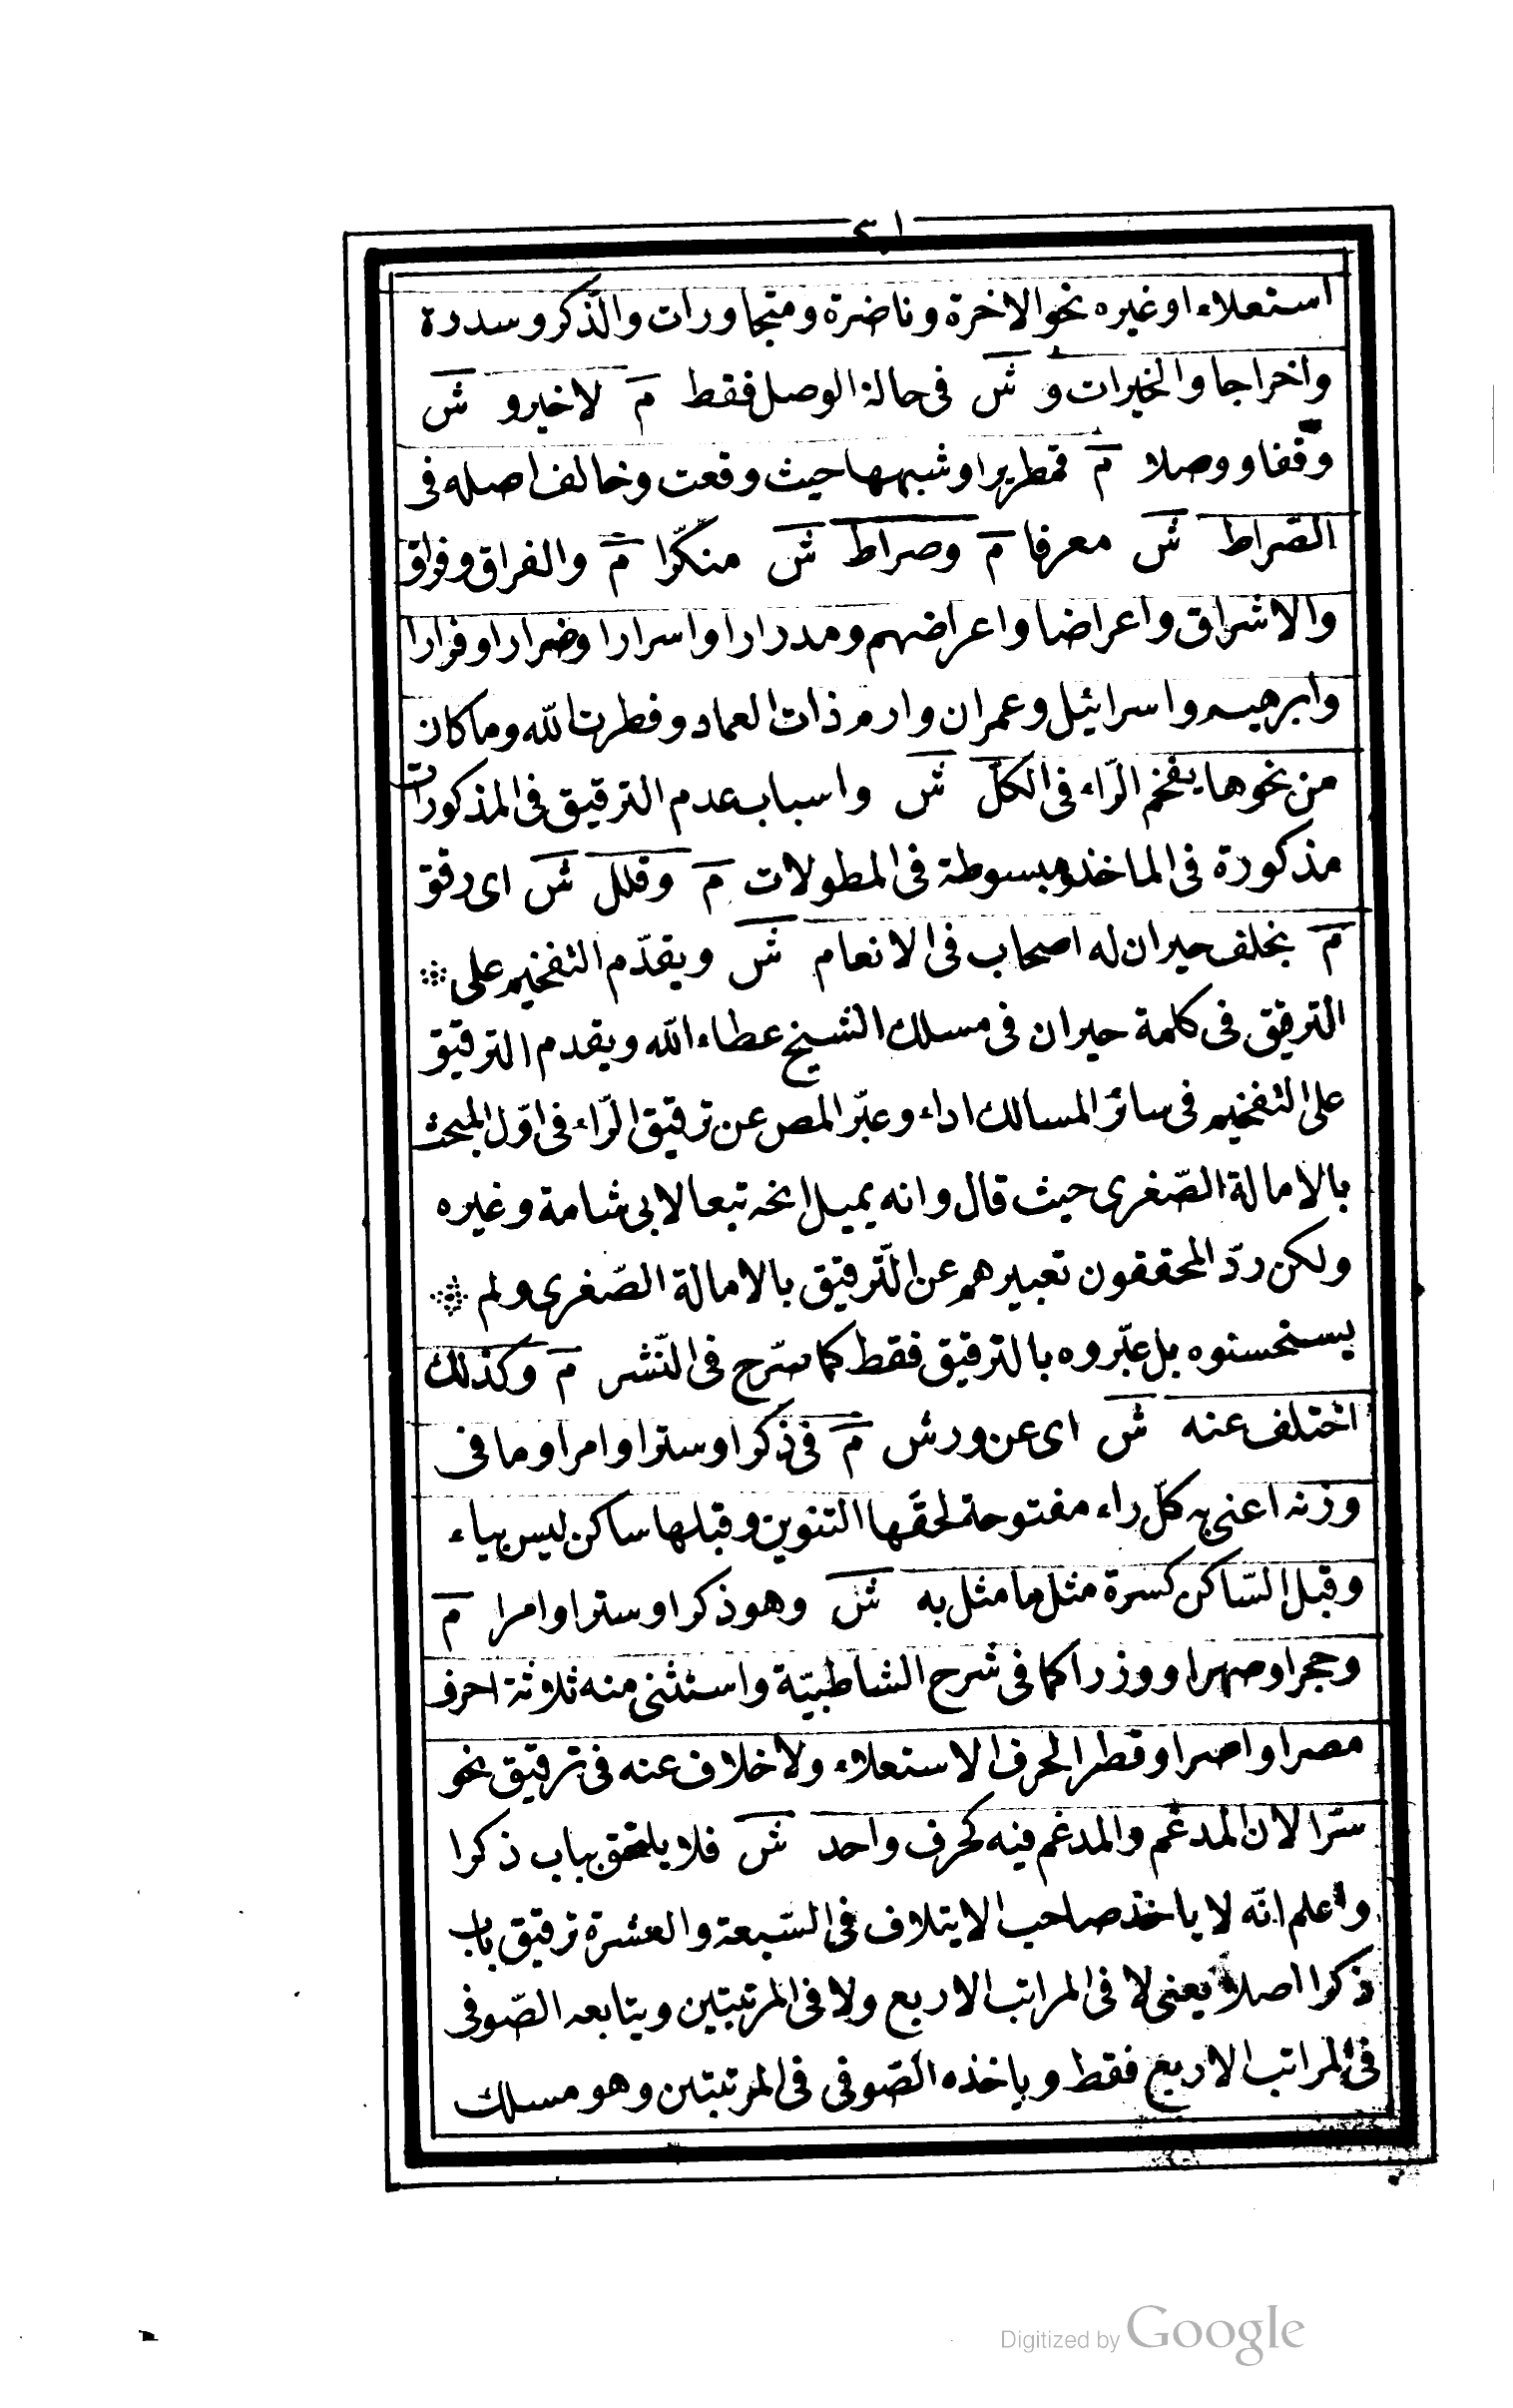 ٣١
استعلاء او غيره نحو الاخرة وناضرة ومتجاورات والذّكر وسدرة
واخراجا والخيرات و ش في حالة الوصل فقط م لاخير و ش
وقفا ووصلا م قمطريرا وشبهها حيث وقعت وخالف اصله في
الصّراط ش معرفا م وصراط ش منكّرا م والفراق وفراق
والاشراق واعراضا واعراضهم ومدرارا واسرارا وضرارا وفرارا
وابرهيم واسرائيل وعمران وارم ذات العماد وفطرت الله وما كان
من نحوها يفخم الرّاء في الكلّ ش واسباب عدم الترقيق في المذكورات
مذكورة في الماخذ ومبسوطة في المطولات م وقلل ش اى رقق
م بخلف حيران له اصحاب في الانعام ش ويقدّم التفخيم على
الترقيق في كلمة حيران في مسلك الشيخ عطاء الله ويقدم الترقيق
على التفخيم في سائر المسالك اداء وعبّر المص عن ترقيق الرّاء في اوّل المبحث
بالامالة الصّغرى حيث قال وانه يميل الخ تبعا لابى شامة وغيره
ولكن ردّ المحققون تعبيرهم عن التّرقيق بالامالة الصّغرى ولم
يستحسنوه بل عبّروه بالترقيق فقط كما صرّح في النّشر م وكذلك
اختلف عنه ش اى عن ورش م في ذكرا وسترا وامرا وما في
وزنه اعنى به كلّ راء مفتوحة لحقها التنوين وقبلها ساكن ليس بياء
وقبل السّاكن كسرة مثل ما مثل به ش وهو ذكرا وسترا وامرا م
وحجرا وصهرا ووزرا كما في شرح الشاطبيّة واستثنى منه ثلاثة احرف
مصرا واصرا وقطرا لحرف الاستعلاء ولا خلاف عنه في ترقيق نحو
سرّا لان المدغم والمدغم فيه كحرف واحد ش فلا يلحق بباب ذكرا
واعلم انّه لا ياخذ صاحب الايتلاف في السّبعة والعشرة ترقيق باب
ذكرا اصلا يعنى لا في المراتب الاربع ولا في المرتبتين ويتابعه الصّوفى
في المراتب الاربع فقط وياخذه الصّوفى في المرتبتين وهو مسلك
Digitized by Google